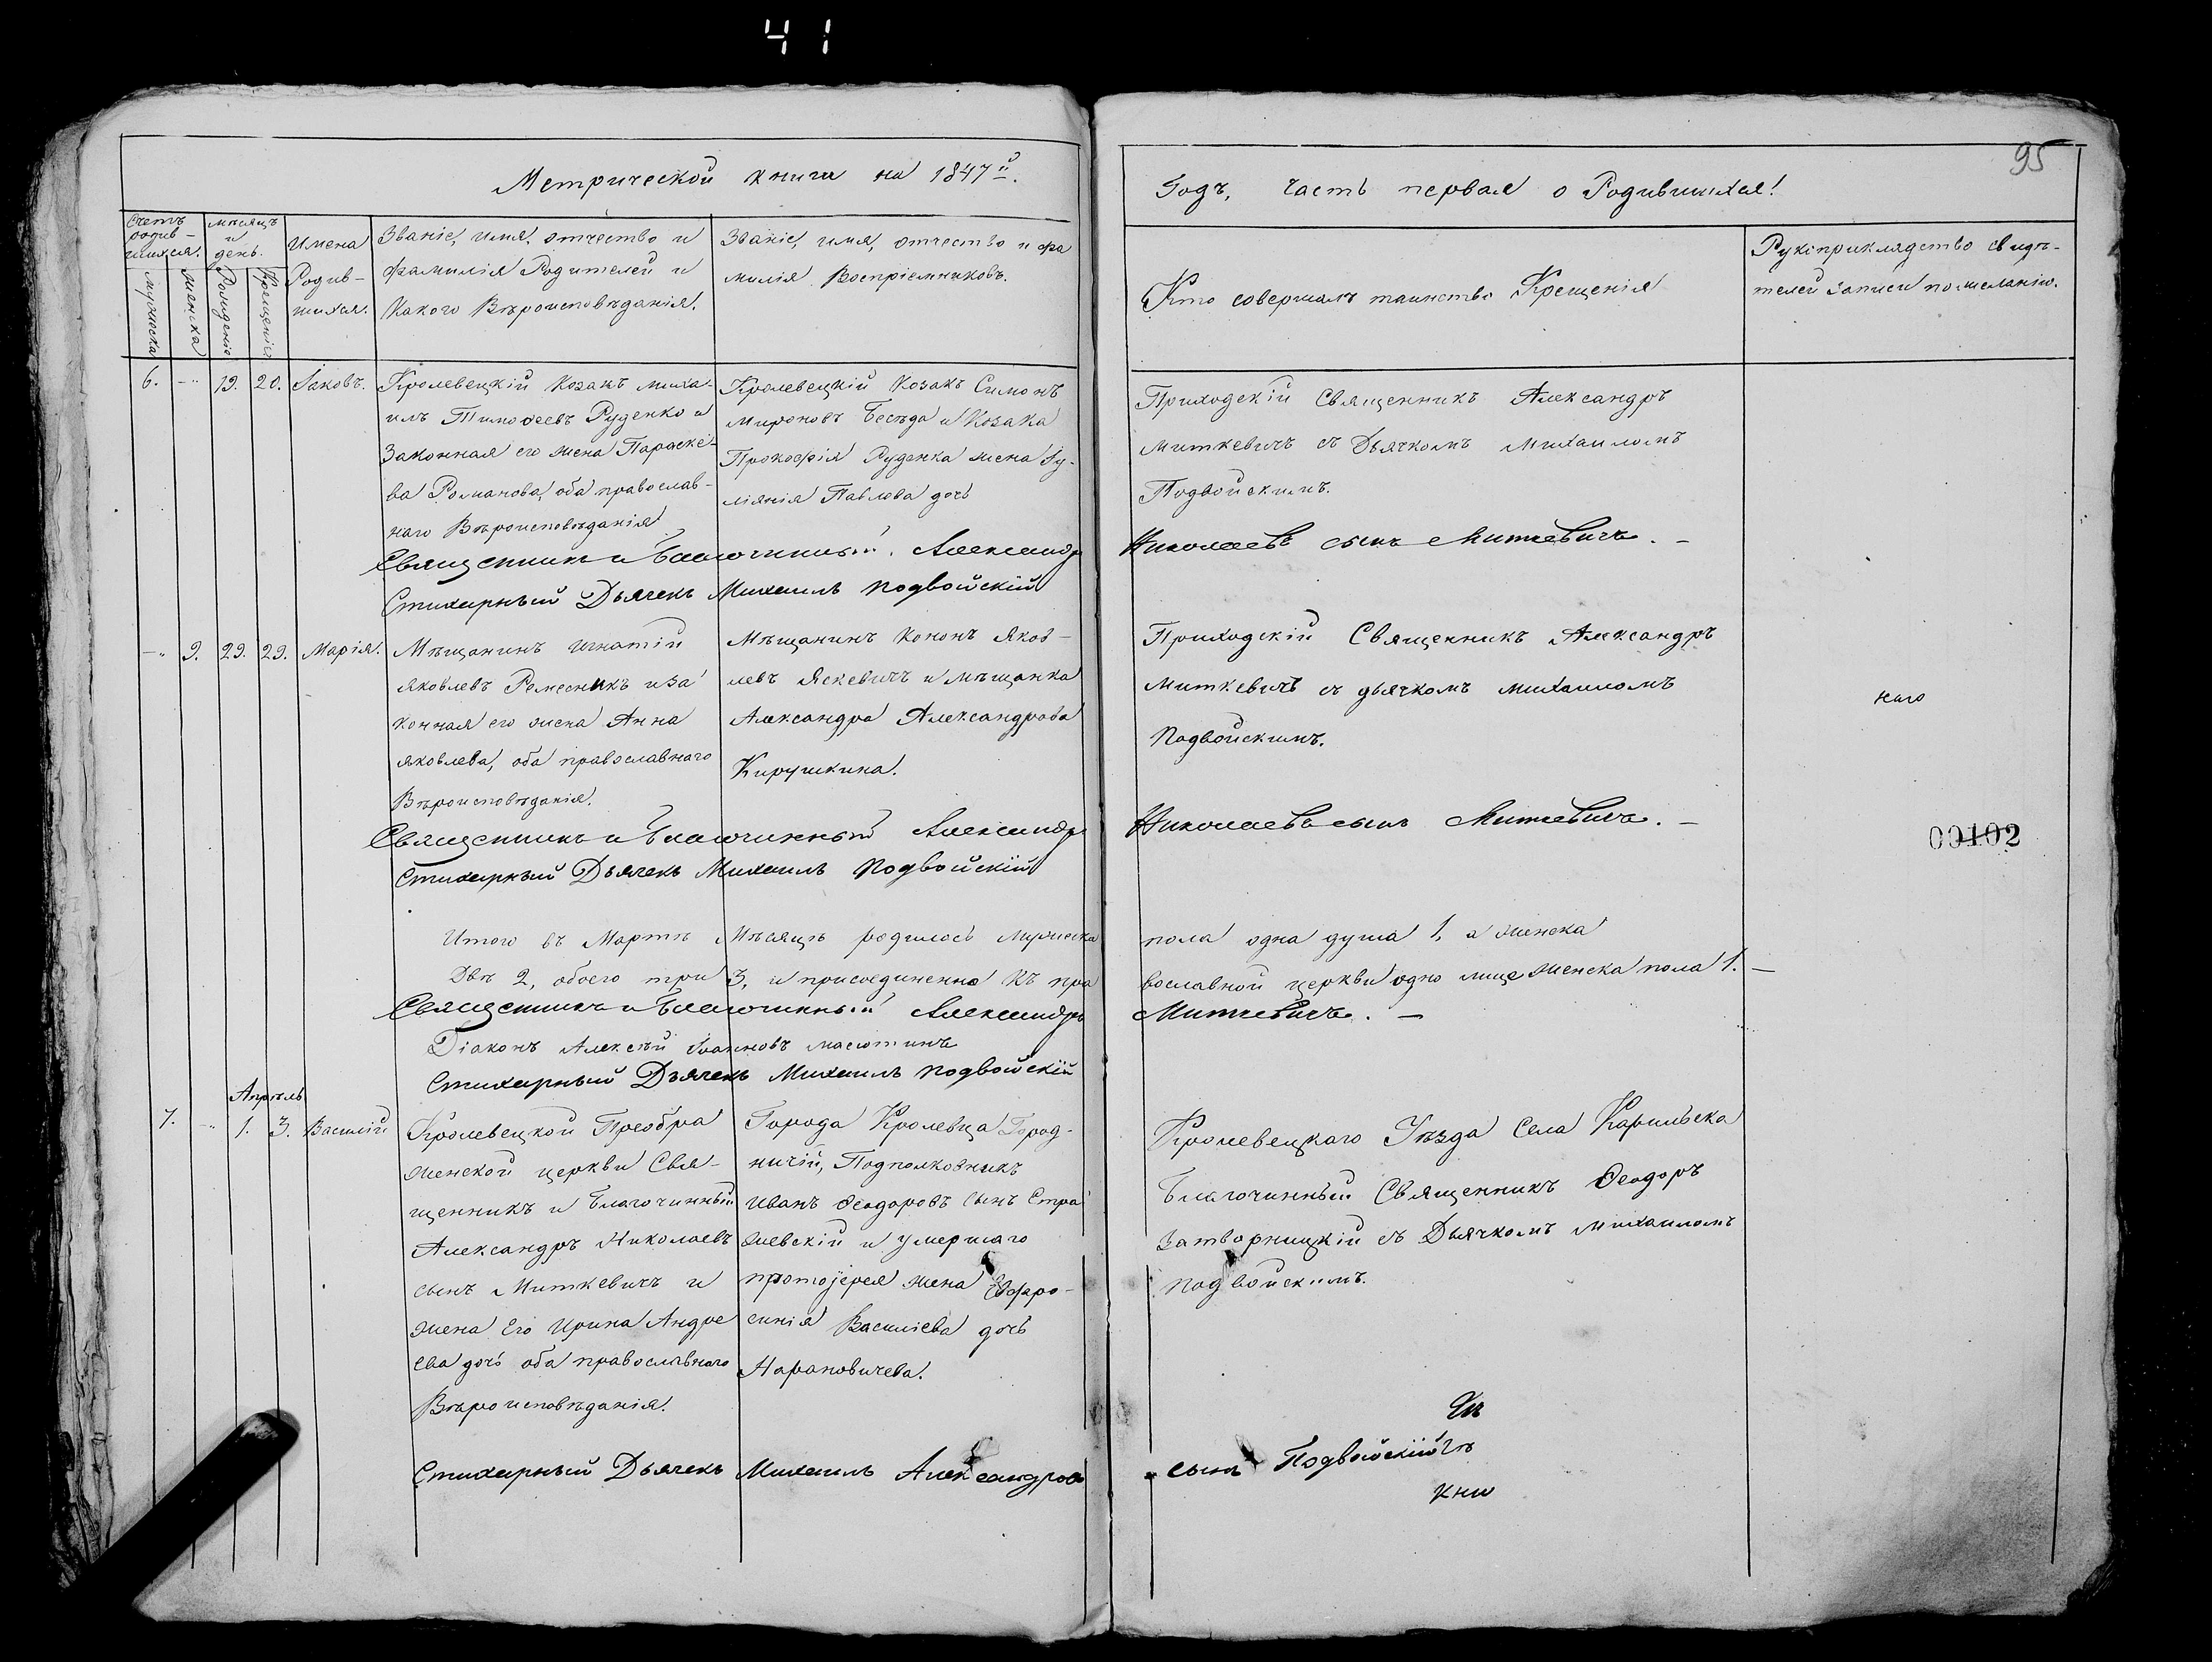 41
95
Метрической книги на 1847й.
Годъ, часть первая о Родившихся!
Счетъ родив-шихся.
мужеска
женска
мѣсяцъ и день.
Рожденія
Крещенія
Имена
Родив-
шихся.
Званіе, имя, отчество и
Фамилія Родителей и
Какого Вѣроисповѣданія.
Званіе, имя, отчество и фа
милія Воспріемниковъ.
Кто совершалъ таинство Крещенія
Рукоприкладство свидѣ-
телей записи по желанію.
6. -„ 19. 20. Іаковъ.
Кролевецкій Козакъ Миха-
илъ Тимофеевъ Руденко и
Законная его жена Параске-
ва Романова, оба православ-
наго Вѣроисповѣданія
Кролевецкій Козакъ Симонъ
Мироновъ Бесѣда и Козака
Прокофія Руденка жена Іу-
ліянія Павлова дочь
Приходскій Священникъ Александръ
Миткевичъ съ Дьячкомъ Михаиломъ
Подвойскимъ.
Священникъ и Благочинный Александръ Николаевъ сынъ Миткевичъ. -
Стихарный Дьячекъ Михаилъ Подвойскій
-„ 9. 29. 29. Марія.
Мѣщанинъ Игнатій
Яковлевъ Ремесникъ и за
конная его жена Анна
Яковлева, оба православнаго
Вѣроисповѣданія.
Мѣщанинъ Кононъ Яков-
левъ Яскевичъ и мѣщанка
Александра Александрова
Кирушкина.
Приходскій Священникъ Александръ
Миткевичъ съ дьячкомъ Михаиломъ
Подвойскимъ.
наго
Священникъ и Благочинный Александръ Николаевъ сынъ Миткевичъ. -
00102
Стихарный Дьячекъ Михаилъ Подвойскій
Итого въ Мартѣ Мѣсяцѣ родилось Мужеска пола одна душа 1, а женска
Двѣ 2, обоего три 3, и присоединенно къ пра вославной церкви одно лице женска пола 1. -
Священникъ и Благочинный Александръ Миткевичъ. -
Діаконъ Алексѣй Іоанновъ Масютинъ
Стихарный Дьячекъ Михаилъ Подвойскій
Апрѣль
7. -„ 1. 3. Василій
Кролевецкой Преобра
женской церкви Свя-
щенникъ и Благочинный
Александръ Николаевъ
сынъ Миткевичъ и
жена Его Ирина Андре
ева дочь оба православнаго
Вѣроисповѣданія.
Города Кролевца Город-
ничій, Подполковникъ
Иванъ Феодоровъ сынъ Стра
жевскій и умершаго
протоіерея жена Ефро-
синія Василіева дочь
Нарановичева.
Кролевецкаго Уѣзда Села Карильска
Благочинный Священникъ Феодоръ
Затворницкій съ Дьячкомъ Михаиломъ
Подвойскимъ.
Стихарный Дьячекъ Михаилъ Александровъ сынъ Подвойскій
кни